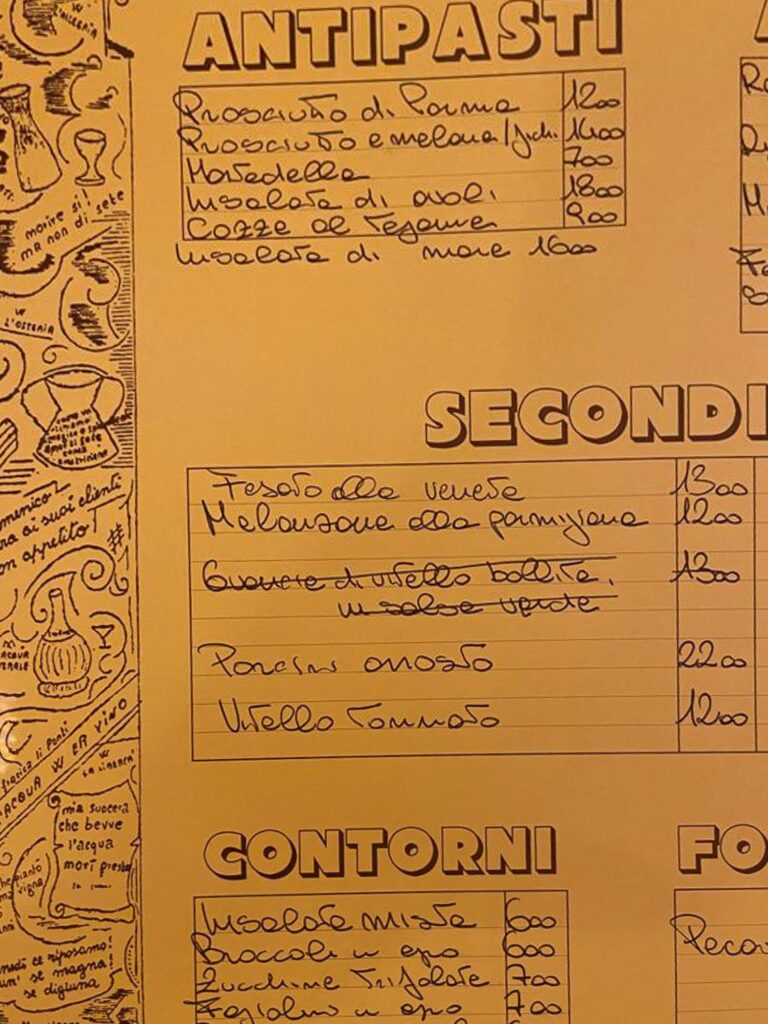 ANTIPASTI
Prosciutto di Parma 1200
Prosciutto e melone/fichi 1400
Mortadella 700
Insalata di ovoli 1800
Cozze al tegame 900
Insalata di mare 1600
SECONDI
Fegato alla veneta 1300
Melanzane alla parmigiana 1200
Guancia di vitello bollita, 1300
in salsa verde
Porcini arrosto 2200
Vitello Tonnato 1200
CONTORNI
Insalata mista 600
Broccoli in ago 600
Zucchine Trifolate 700
Fagiolini in ago 700
FO
Pecor
morire si!
ma non di sete
W
L'OSTERIA
menico
ra ai suoi clienti
on appetito
ACQUA W ER VINO
mia suocera
che bevve
l'acqua
morì presto
ce riposamo!
un' se magna!
se digiuna